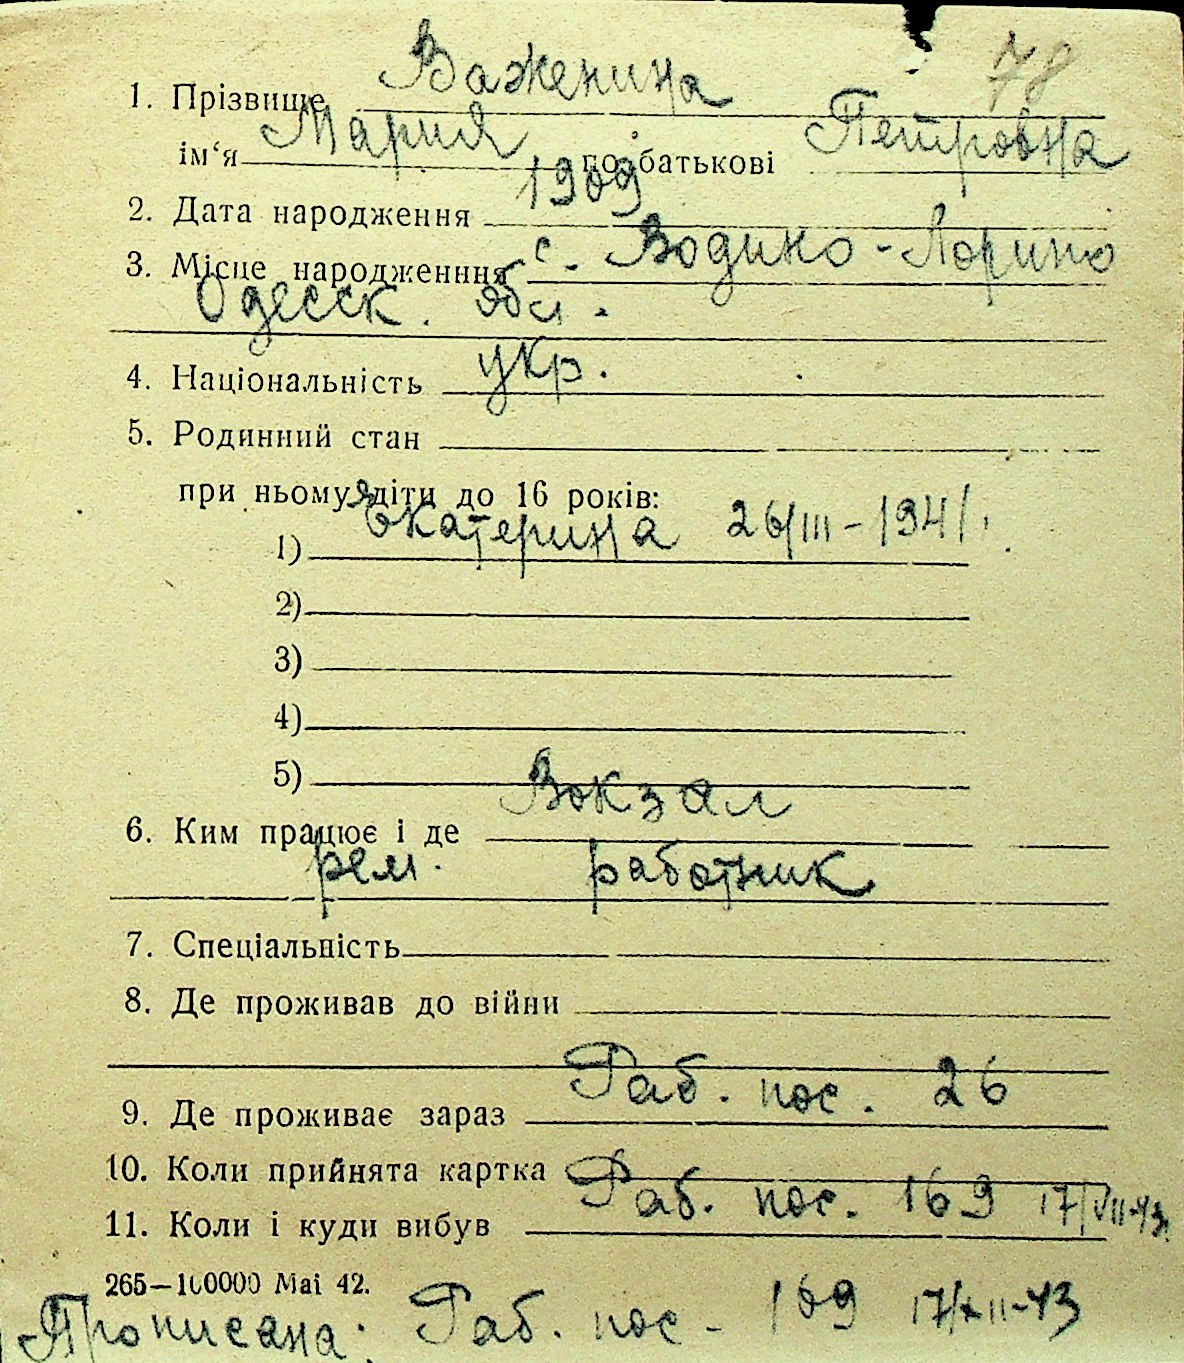 78
1. Прізвище Важенина
ім‘я Мария по батькові Петровна
2. Дата народження 1909
3. Місце народженння с. Водино-Лорино
Одесск. обл.
4. Національність укр.
5. Родинний стан
при ньому діти до 16 років:
1) Екатерина 26/III-1941.
2)
3)
4)
5)
6. Ким працює і де Вокзал
рем. работник
7. Спеціальність
8. Де проживав до війни
9. Де проживає зараз Раб. пос. 26
10. Коли прийнята картка
11. Коли і куди вибув Раб. пос. 169 17/VII-43
265—100000 Mai 42.
Прописана: Раб. пос - 169 17/XII-43